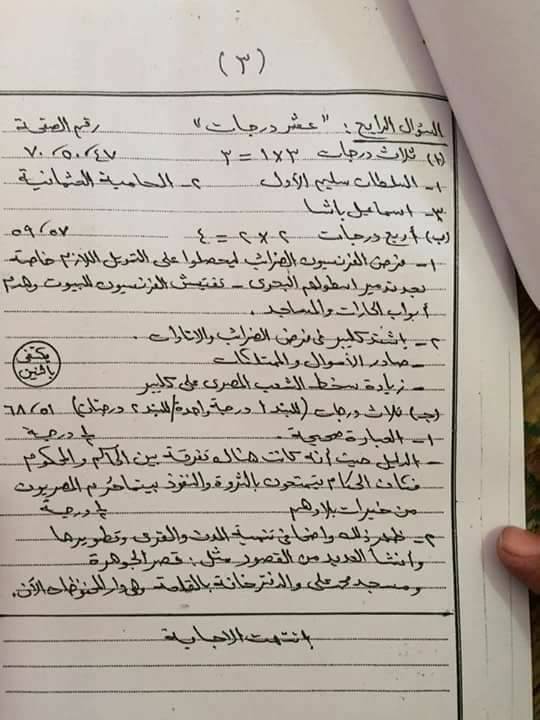 (٣)
السؤال الرابع: "عشر درجات" رقم الصفحة
(أ) ثلاث درجات ٣×١ = ٣ ٤٧/٥٠/٧٠
١- السلطان سليم الأول ٢- الحامية العثمانية
٣- اسماعيل باشا
(ب) أربع درجات ٢×٢ = ٤ ٥٧/٥٩
١- فرض الفرنسيون الضرائب ليحصلوا على التمويل اللازم خاصة
بعد تدمير اسطولهم البحرى - تفتيش الفرنسيون للبيوت وهدم
أبواب الحارات والمساجد.
٢- اشتد كليبر فى فرض الضرائب والاتاوات.
- صادر الأموال والممتلكات
يكتفى باثنين
- زيادة سخط الشعب المصرى على كليبر
(جـ) ثلاث درجات (للبند ١ درجة واحدة/للبند ٢ درجتان) ٥١/٦٨
١- العبارة صحيحة. ½ درجة
- الدليل حيث أنه كانت هناك تفرقة بين الحاكم والمحكوم
فكان الحكام يتمتعون بالثروة والنفوذ بينما حُرم المصريون
من خيرات بلادهم ½ درجة
٢- ظهر ذلك واضحا فى تنمية المدن والقرى وتطويرها
وأنشأ العديد من القصور مثل: قصر الجوهرة
ومسجد محمد على والدفتر خانة بالقلعة وهى دار المحفوظات الآن.
انتهت الاجابة